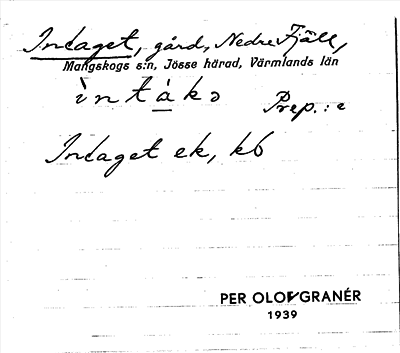 Intaget, gård, Nedre Fjäll,
Mangskogs s:n, Jösse härad, Värmlands län
ìntákə
Prep.: e
Intaget ek, kb
PER OLOF GRANÉR
1939